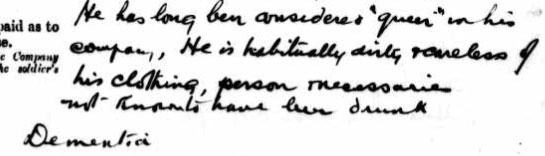 paid as to
e.
e Company
he soldier's
He has long ben considered "queer" in his
company, He is habitually dirty & careless of
his clothing, person necessaries
not known to have been drunk
Dementia